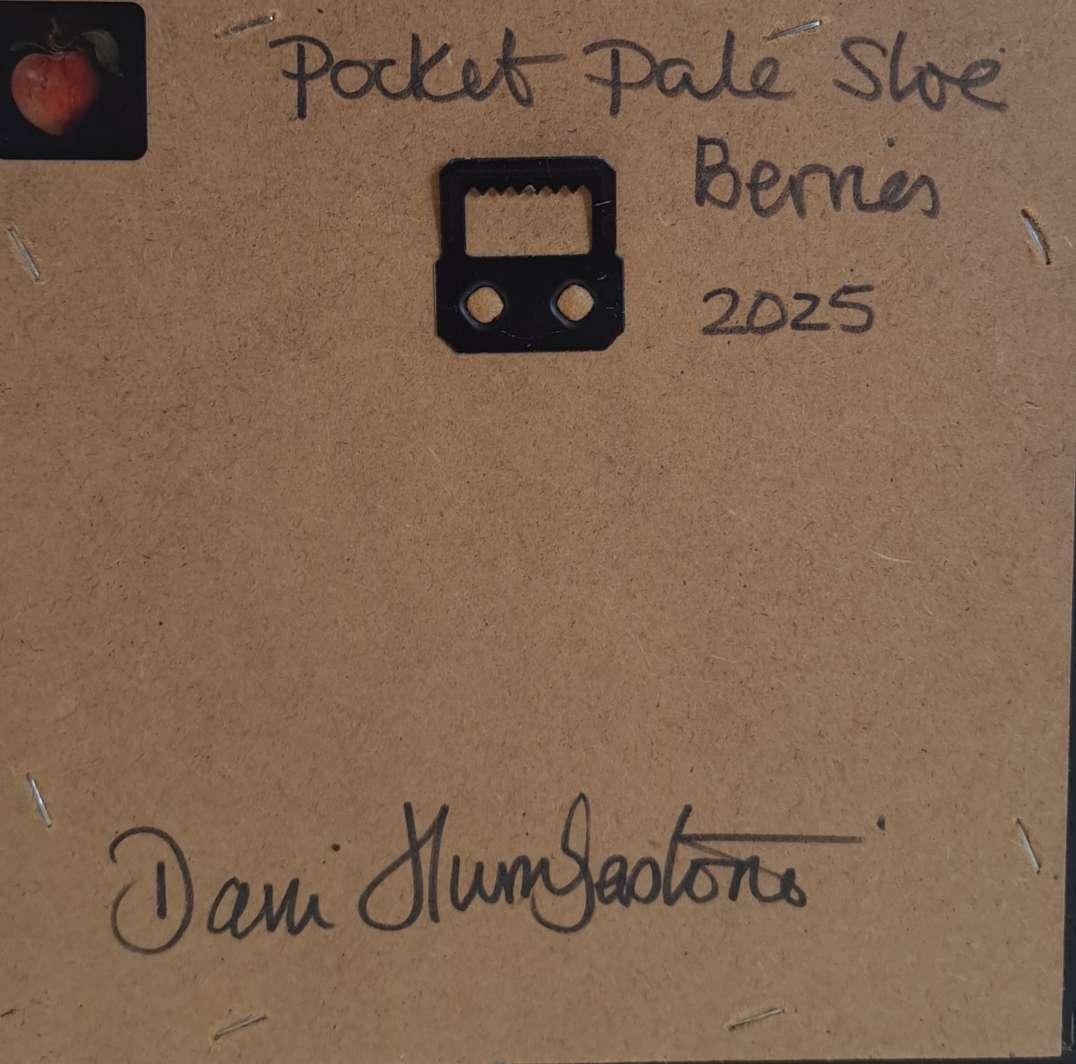 Pocket Pale Sloe
Berries
2025
Dani Humberstone